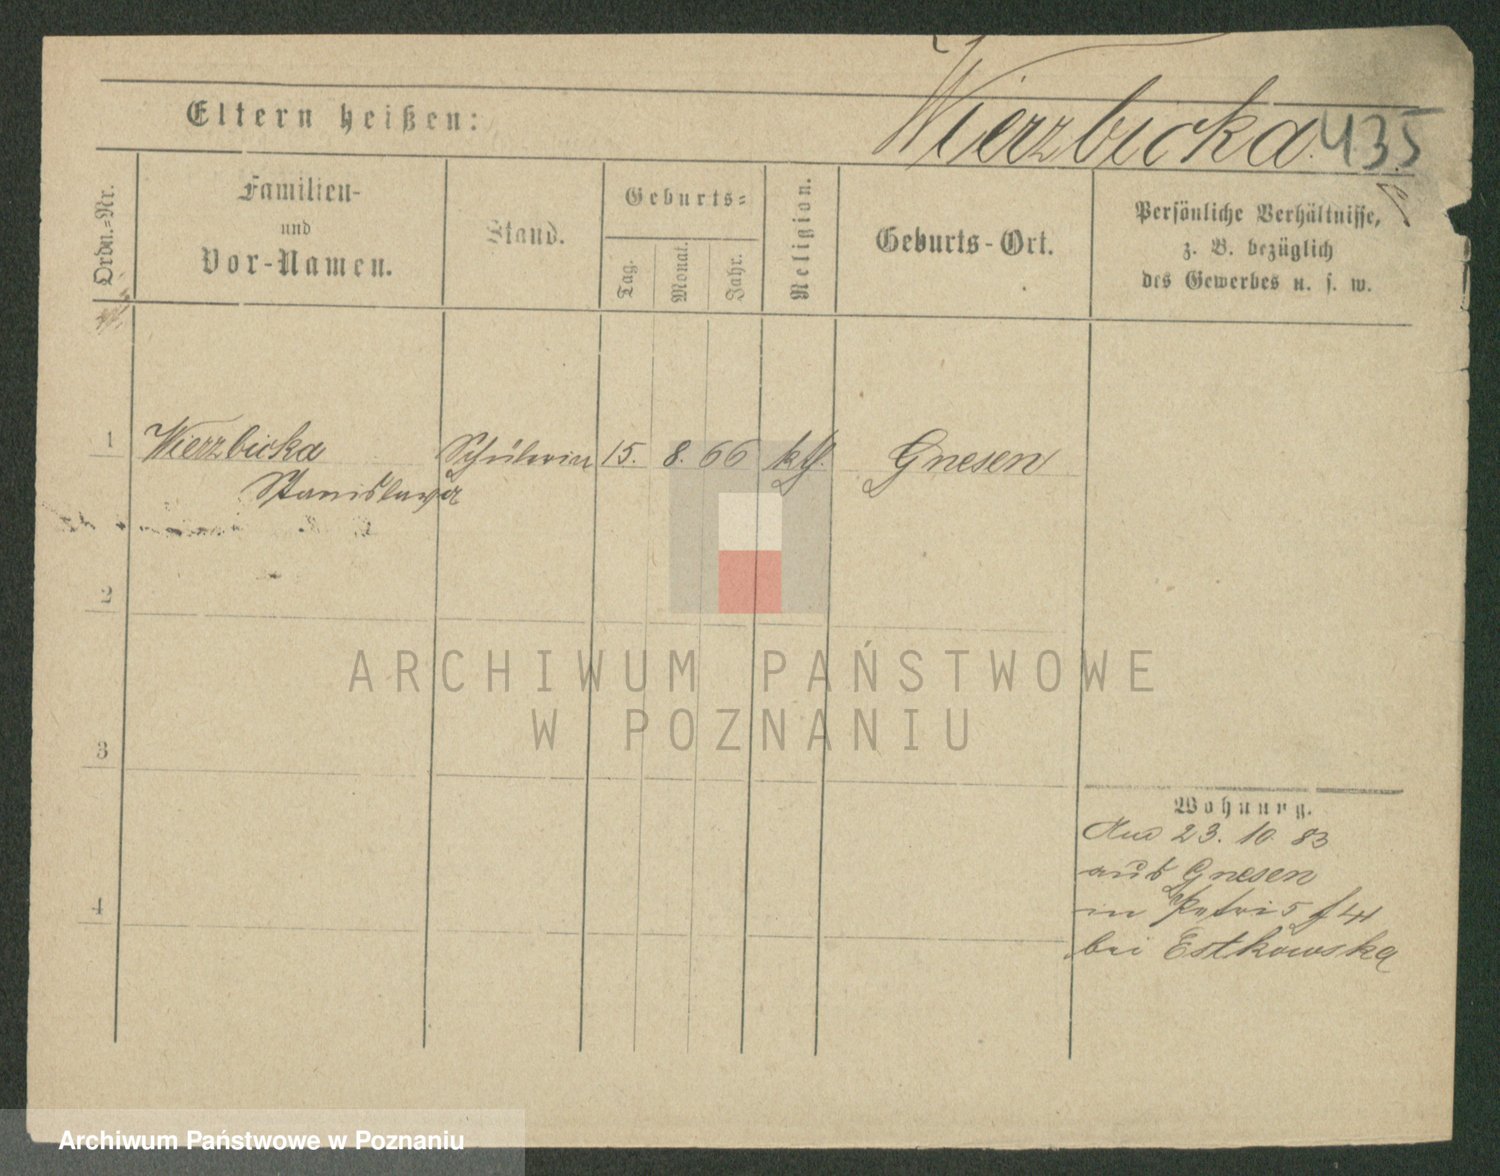 Wierzbicka. 435
Eltern heißen:
Ordn.-Nr.
Familien-
und
Vor-Namen.
Stand.
Geburts-
Tag.
Monat.
Jahr.
Religion.
Geburts-Ort.
Persönliche Verhältnisse,
z. B. bezüglich
des Gewerbes u. s. w.
1 Wierzbicka Schülerin 15. 8. 66 kth. Gnesen
Stanislawa
2
3
4
Wohnung.
23. 10. 83
aus Gnesen
in Petri 5
bei Estkowska
ARCHIWUM PAŃSTWOWE
W POZNANIU
Archiwum Państwowe w Poznaniu